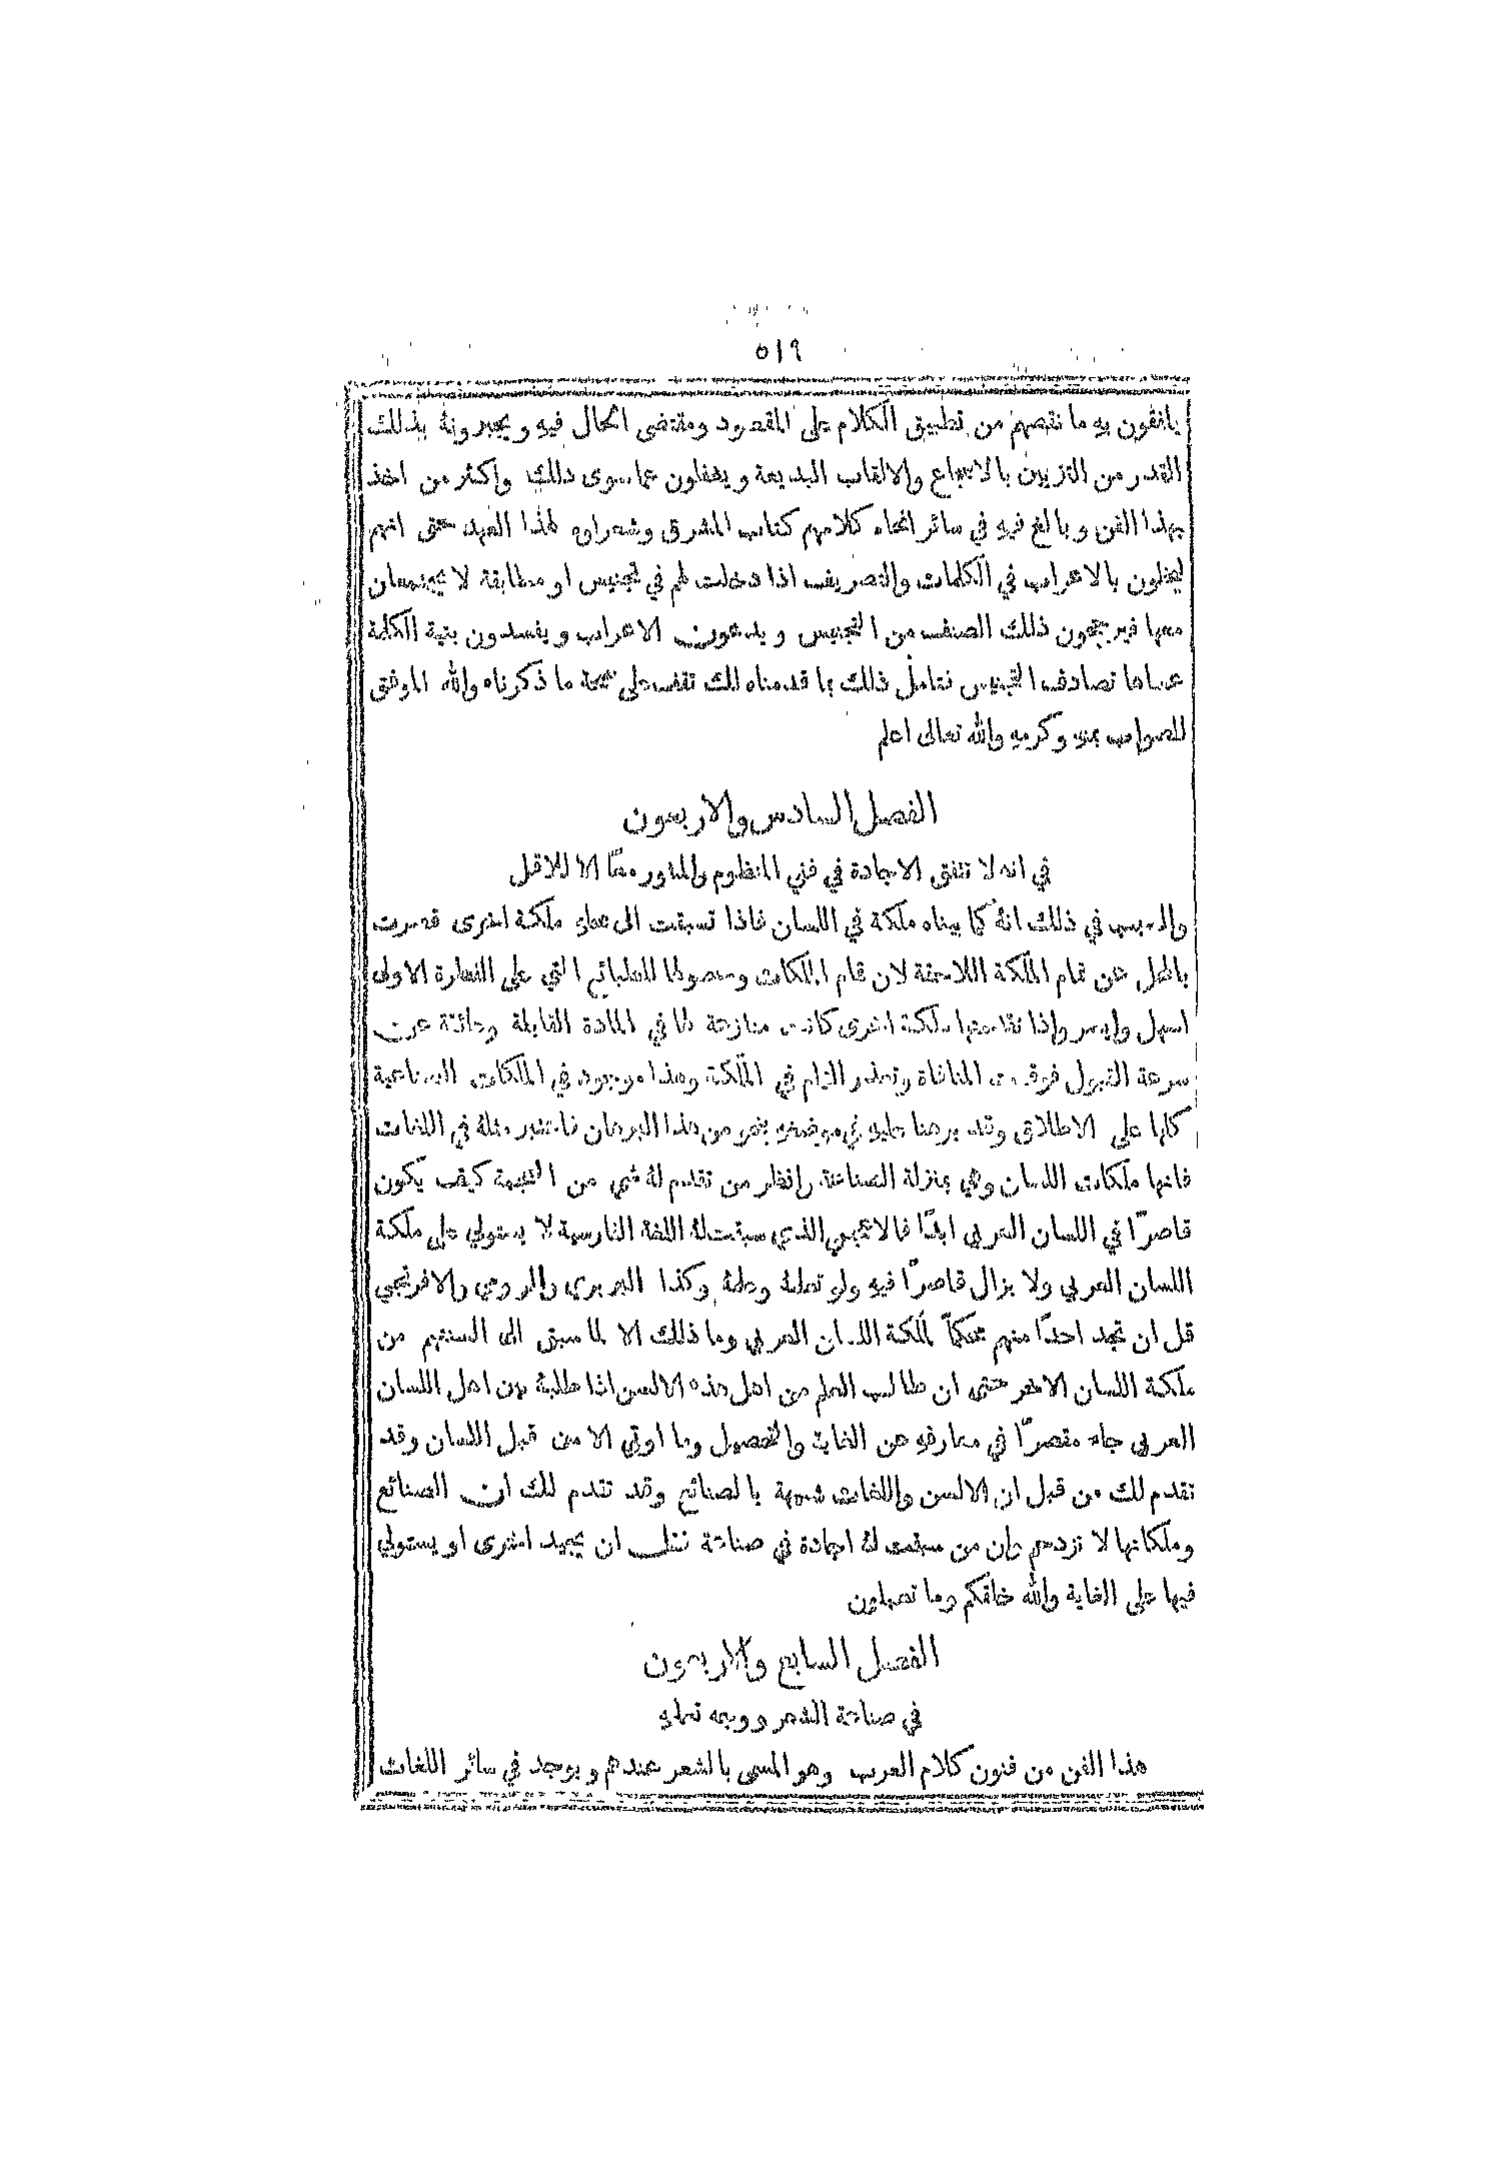 ٥١٩
يلفقون به ما نقصهم من تطبيق الكلام على المقصود ومقتضى الحال فيه ويجبرونهُ بذلك
القدر من التزيين بالاسجاع والالقاب البديعة ويغفلون عما سوى ذلك واكثر من اخذ
بهذا الفن وبالغ فيه في سائر انحاء كلامهم كتاب المشرق وشعراوه لهذا العهد حتى انهم
ليخلون بالاعراب في الكلمات والتصريف اذا دخلت لهم في تجنيس او مطابقة لا يجتمعان
معها فيرجحون ذلك الصنف من التجنيس ويدعون الاعراب ويفسدون بنية الكلمة
عساها تصادف التجنيس فتامل ذلك بما قدمناه لك تقف على صحة ما ذكرناه والله الموفق
للصواب بمنه وكرمه والله تعالى اعلم
الفصل السادس والاربعون
في انه لا تتفق الاجادة في فني المنظوم والمنثور معًا الا للاقل
والسبب في ذلك انهُ كما بيناه ملكة في اللسان فاذا تسبقت الى محله ملكة اخرى قصرت
بالمحل عن تمام الملكة اللاحقة لان تمام الملكات وحصولها للطبائع التي على الفطرة الاولى
اسهل وايسر واذا تقدمتها ملكة اخرى كانت منازعة لها في المادة القابلة وعائقة عن
سرعة القبول فوقعت المنافاة وتعذر التمام في الملكة وهذا موجود في الملكات الصناعية
كلها على الاطلاق وقد برهنا عليه في موضعه بنحو من هذا البرهان فاعتبر مثلهُ في اللغات
فانها ملكات اللسان وهي بمنزلة الصناعة وانظر من تقدم لهُ شي من العجمة كيف يكون
قاصرًا في اللسان العربي ابدًا فالاعجمي الذي سبقت لهُ اللغة الفارسية لا يستولي على ملكة
اللسان العربي ولا يزال قاصرًا فيه ولو تعلمهُ وعلمهُ وكذا البربري والرومي والافرنجي
قل ان تجد احدًا منهم محكمًا لملكة اللسان العربي وما ذلك الا لما سبق الى السنتهم من
ملكة اللسان الاخر حتى ان طالب العلم من اهل هذه الالسن اذا طلبهُ بين اهل اللسان
العربي جاء مقصرًا في معارفه عن الغاية والتحصيل وما اوتي الا من قبل اللسان وقد
تقدم لك من قبل ان الالسن واللغات شبيهة بالصنائع وقد تقدم لك ان الصنائع
وملكاتها لا تزدحم وان من سبقت لهُ اجادة في صناعة فقل ان يجيد اخرى او يستولي
فيها على الغاية والله خلقكم وما تعملون
الفصل السابع والاربعون
في صناعة الشعر ووجه تعلمه
هذا الفن من فنون كلام العرب وهو المسمى بالشعر عندهم ويوجد في سائر اللغات